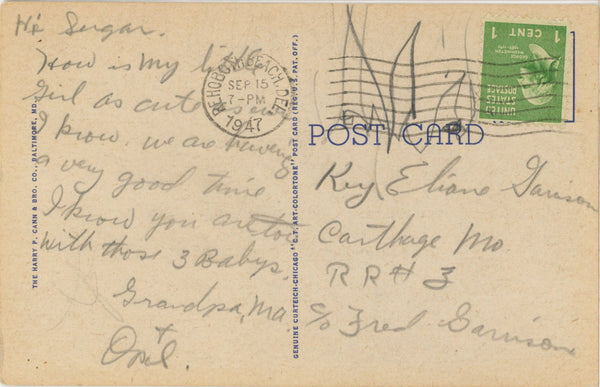 Hi Sugar.
How is my little
girl as cute as ever
I know. we are having
a very good time
I know you are too
with those 3 Babys.
Grandpa, Ma
+
Opal.
REHOBOTH BEACH, DEL.
SEP 15
7-PM
1947
1 CENT 1
GEORGE WASHINGTON
UNITED STATES POSTAGE
POST CARD
Eliane Garison
Carthage Mo.
RR # 3
c/o Fred Garrison
THE HARRY P. CANN & BRO. CO., BALTIMORE, MD.
GENUINE CURTEICH-CHICAGO "C.T. ART-COLORTONE" POST CARD (REG. U.S. PAT. OFF.)